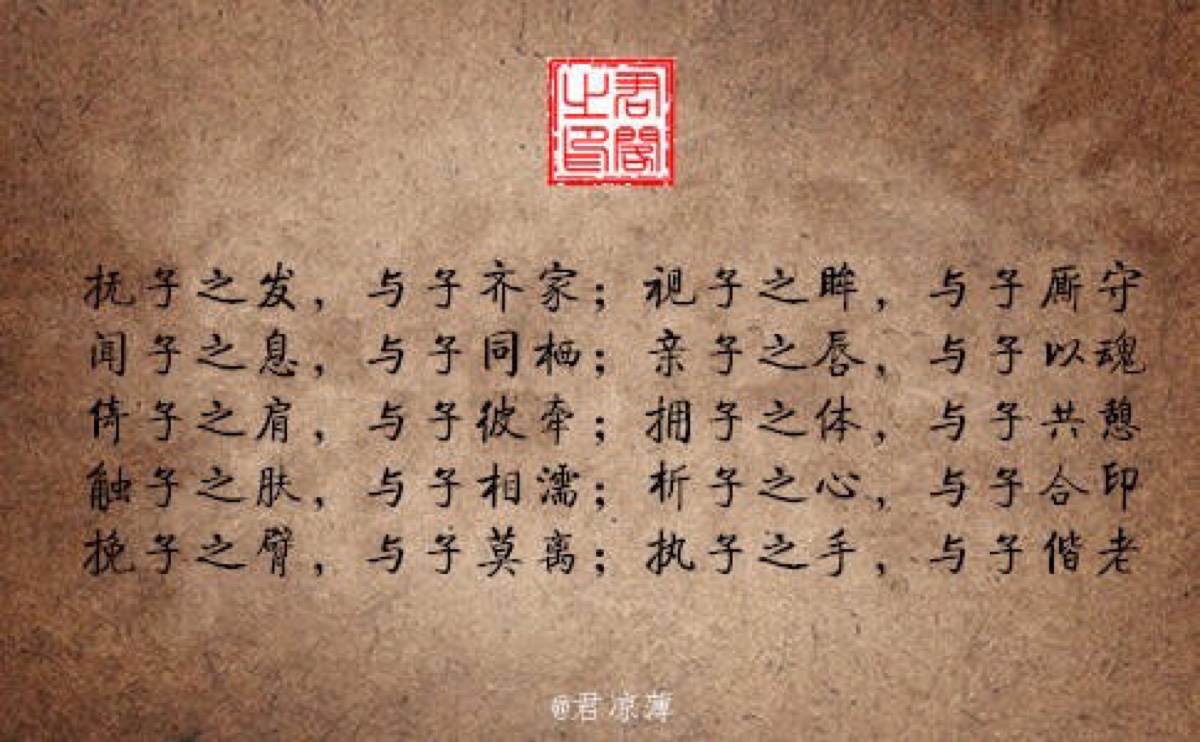 君阁之印
抚子之发，与子齐家；视子之眸，与子厮守
闻子之息，与子同栖；亲子之唇，与子以魂
倚子之肩，与子彼牵；拥子之体，与子共憩
触子之肤，与子相濡；析子之心，与子合印
挽子之臂，与子莫离；执子之手，与子偕老
@君凉薄